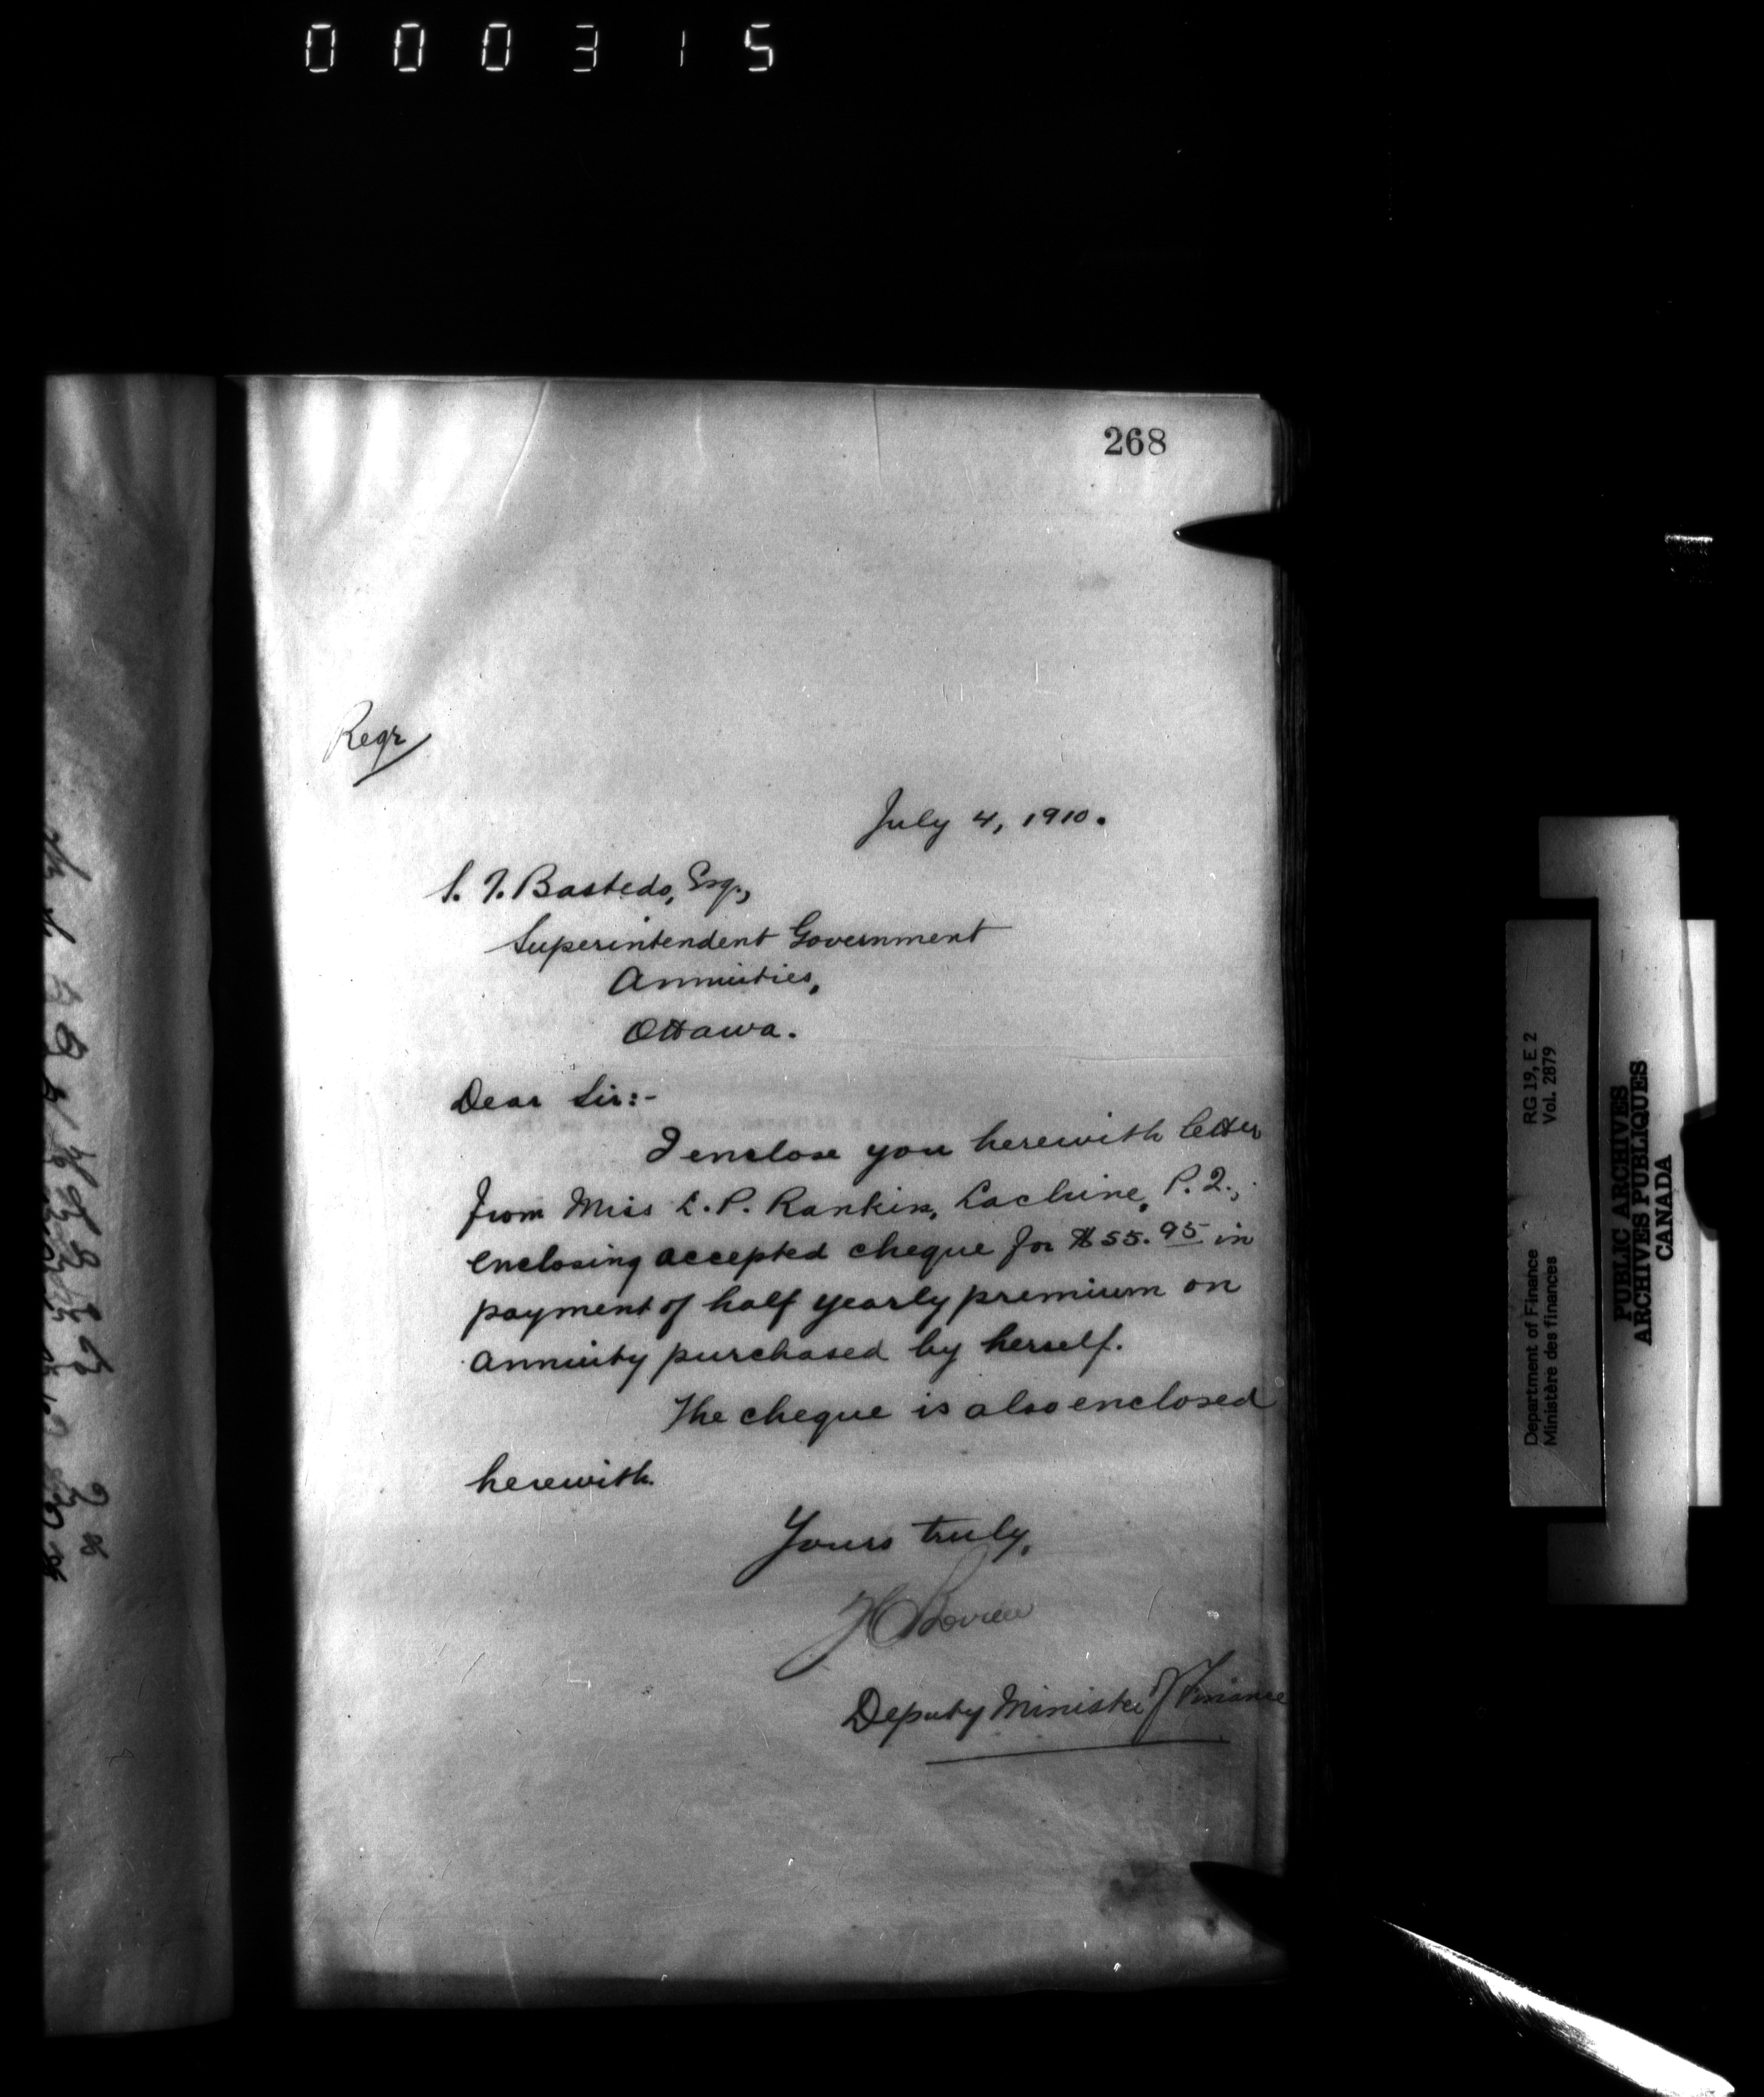 000315
268
Regr
July 4, 1910.
S. T. Bastedo, Esq.,
Superintendent Government
Annuities,
Ottawa.
Dear Sir:-
I enclose you herewith letter
from Miss E. P. Rankin, Lachine, P. Q.,
enclosing accepted cheque for $55.95 in
payment of half yearly premium on
annuity purchased by herself.
The cheque is also enclosed
herewith.
Yours truly,
Deputy Minister of Finance
Department of Finance
Ministère des finances
RG 19, E 2
Vol. 2879
PUBLIC ARCHIVES
ARCHIVES PUBLIQUES
CANADA